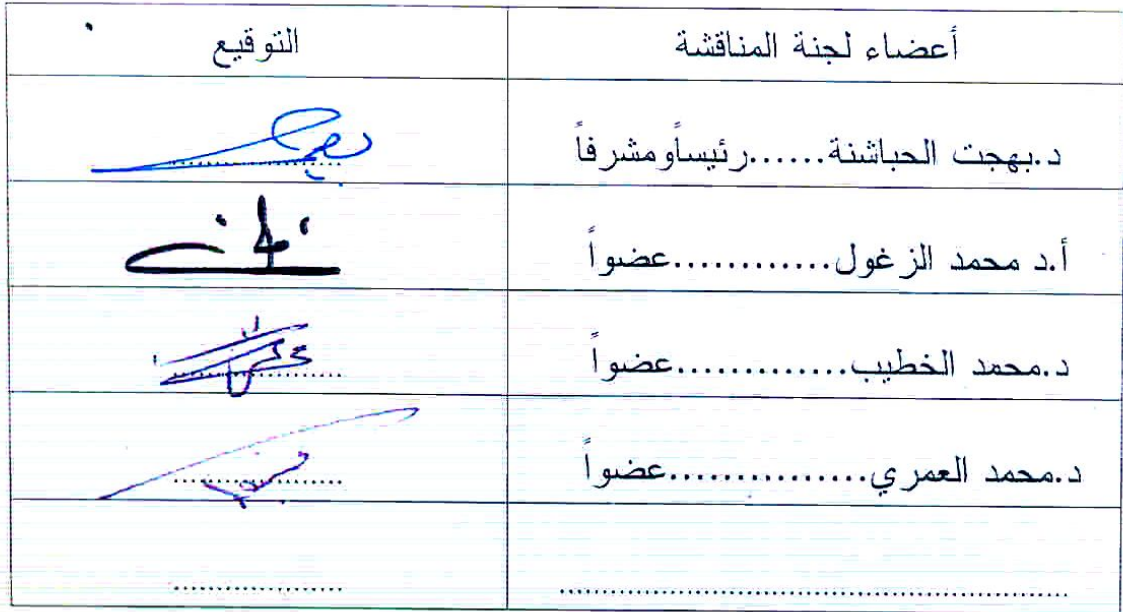 أعضاء لجنة المناقشة التوقيع
د.بهجت الحباشنة......رئيساًومشرفاً ..................
أ.د محمد الزغول............عضواً
د.محمد الخطيب.............عضواً ..................
د.محمد العمري................عضواً ..................
....................................................... ..................